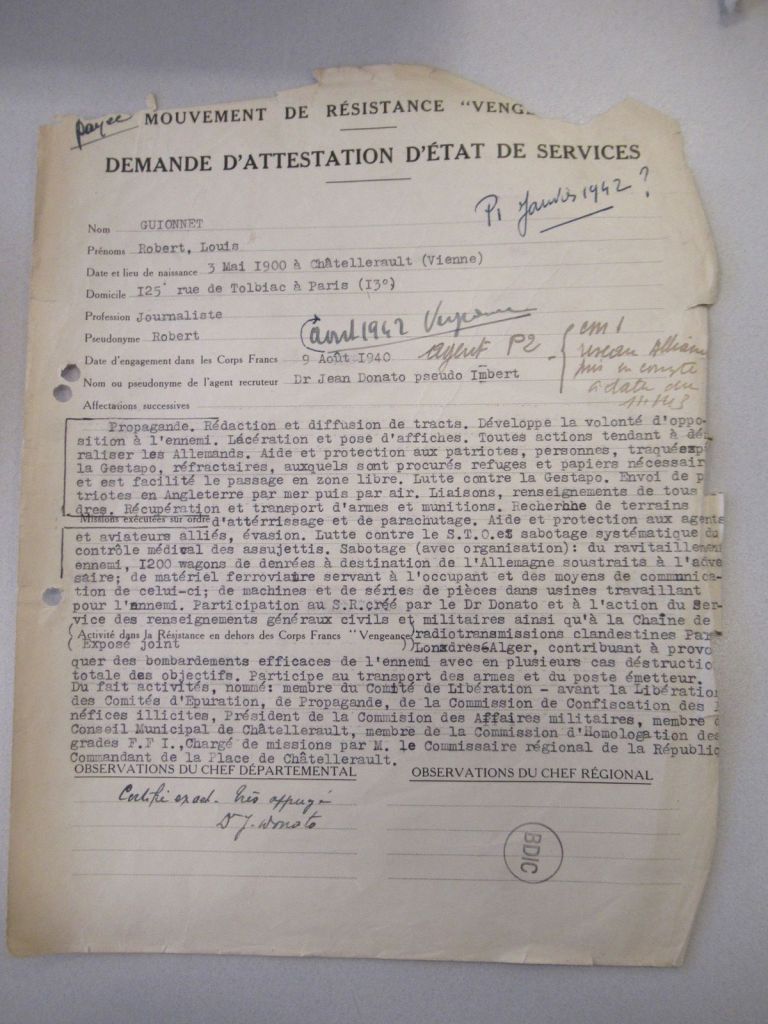 payée
MOUVEMENT DE RÉSISTANCE "VENG
DEMANDE D'ATTESTATION D'ÉTAT DE SERVICES
P1 Janvier 1942 ?
Nom GUIONNET
Prénoms Robert, Louis
Date et lieu de naissance 3 Mai I900 à Châtellerault (Vienne)
Domicile I25 rue de Tolbiac à Paris (I3°)
Profession Journaliste
avril 1942 Vengeance
Pseudonyme Robert
agent P2
Date d'engagement dans les Corps Francs 9 Août I940
cm 1
reseau Allian
pris en compte
a dater du
Nom ou pseudonyme de l'agent recruteur Dr Jean Donato pseudo Imbert
Affectations successives
Propagande. Rédaction et diffusion de tracts. Développe la volonté d'oppo-
sition à l'ennemi. Lacération et pose d'affiches. Toutes actions tendant à dém
raliser les Allemands. Aide et protection aux patriotes, personnes, traquées p
la Gestapo, réfractaires, auxquels sont procurés refuges et papiers nécessair
et est facilité le passage en zone libre. Lutte contre la Gestapo. Envoi de p
triotes en Angleterre par mer puis par air. Liaisons, renseignements de tous
dres. Récupération et transport d'armes et munitions. Recherche de terrains
Missions exécutées sur ordre d'attérrissage et de parachutage. Aide et protection aux agents
et aviateurs alliés, évasion. Lutte contre le S.T.O.et sabotage systématique du
contrôle médical des assujettis. Sabotage (avec organisation): du ravitaillement
ennemi, I200 wagons de denrées à destination de l'Allemagne soustraits à l'adve
saire; de matériel ferroviaire servant à l'occupant et des moyens de communica-
tion de celui-ci; de machines et de séries de pièces dans usines travaillant
pour l'ennemi. Participation au S.R.créé par le Dr Donato et à l'action du Ser-
vice des renseignements généraux civils et militaires ainsi qu'à la Chaîne de
(Activité dans la Résistance en dehors des Corps Francs "Vengeance) radiotransmissions clandestines Par
( Exposé joint ) Londres-Alger, contribuant à provo
quer des bombardements efficaces de l'ennemi avec en plusieurs cas destructio
totale des objectifs. Participe au transport des armes et du poste émetteur.
Du fait activités, nommé: membre du Comité de Libération - avant la Libération
des Comités d'Epuration, de Propagande, de la Commission de Confiscation des
néfices illicites, Président de la Commision des Affaires militaires, membre d
Conseil Municipal de Châtellerault, membre de la Commission d'Homologation des
grades F.F I.,Chargé de missions par M. le Commissaire régional de la Républic
Commandant de la Place de Châtellerault.
OBSERVATIONS DU CHEF DÉPARTEMENTAL
OBSERVATIONS DU CHEF RÉGIONAL
Certifié exact. Très appuyé
Dr J. Donato
BDIC